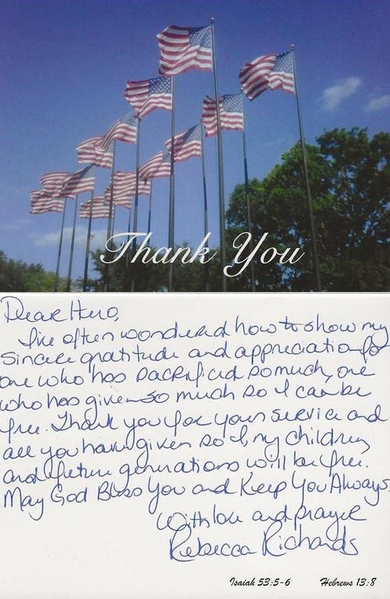 Thank You
Dear Hero,
I've often wondered how to show my
sincere gratitude and appreciation for
one who has sacrificed so much, one
who has given so much so I can be
free. Thank you for your service and
all you have given so I, my children
and future generations will be free.
May God Bless You and Keep You Always
With love and prayer
Rebecca Richards
Isaiah 53:5-6 Hebrews 13:8